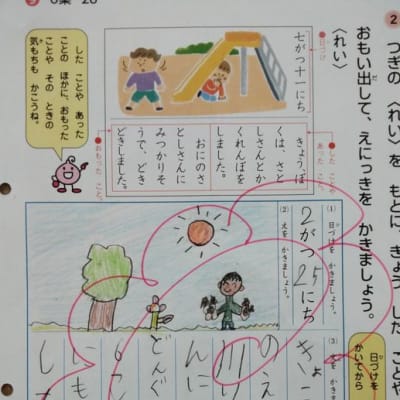 2 つぎの 〈れい〉を もとに、きょう した ことや
おもい出して、えにっきを かきましょう。
〈れい〉
●日づけ
七がつ十一にち
●した こと、
あった こと。
きょう、ぼ
くは、さと
しさんとか
くれんぼを
しました。
おにのさ
としさんに
みつかりそ
うで、どき
どきしました。
●おもった こと。
した ことや あった
ことの ほかに、おもった
ことや その ときの
気もちも かこうね。
日づけを
かいてから
(1) 日づけを かきましょう。
2がつ25にち
(2) えを かきましょう。
(3)
きょ
のえ
川
んに
どんぐ
にも